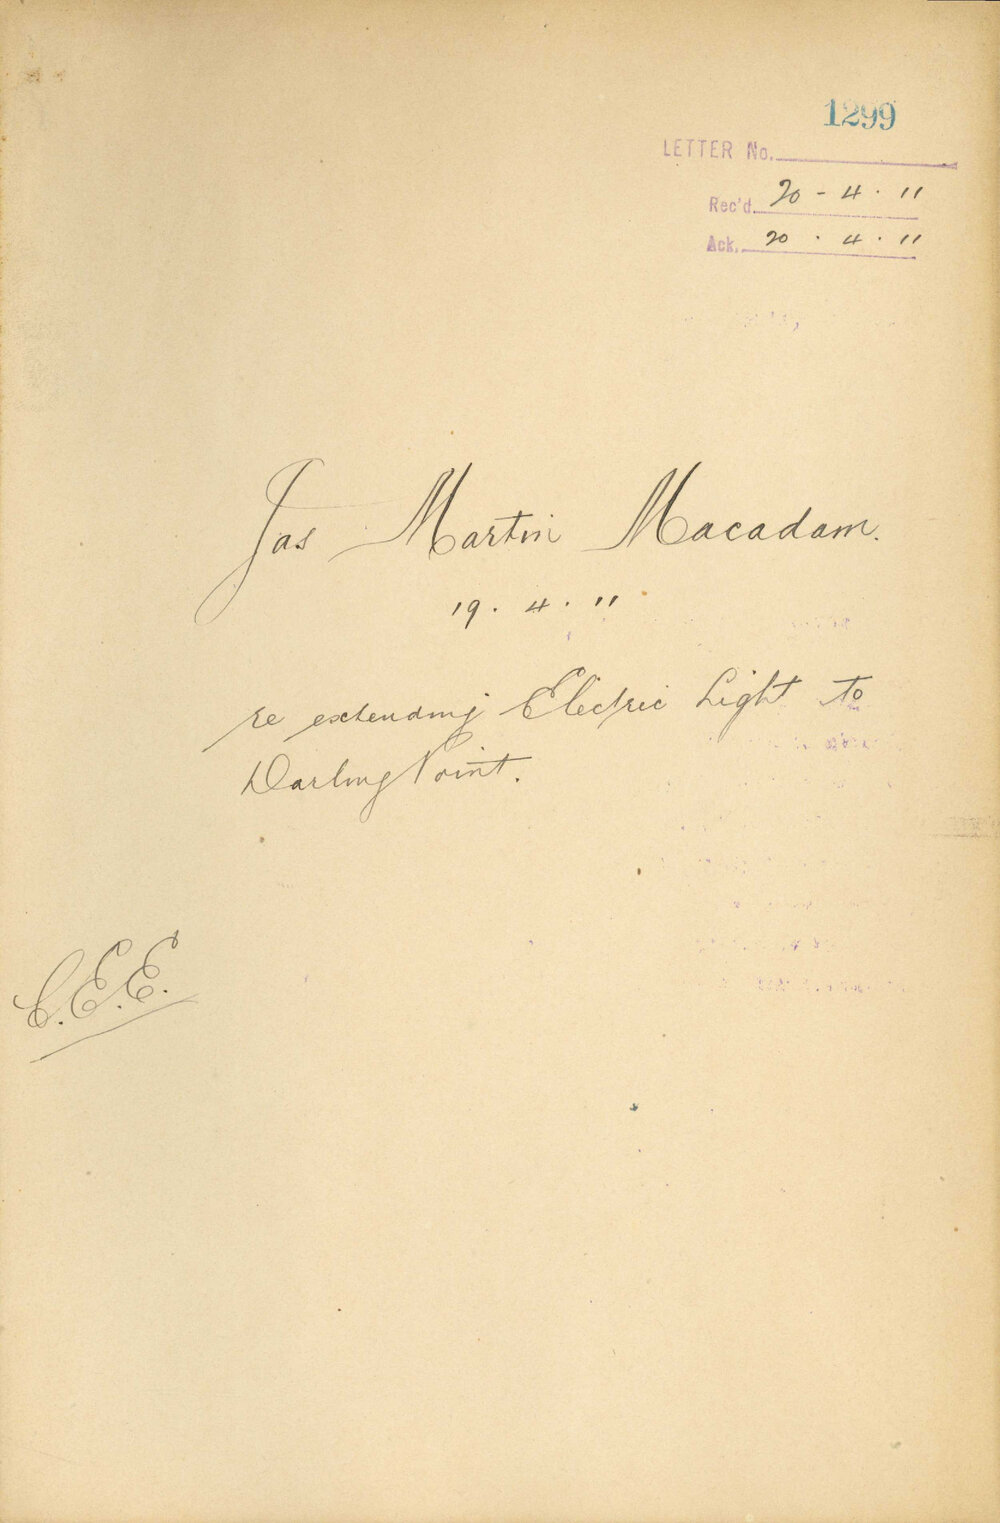 1299
LETTER No.
Rec'd 20 - 4 . 11
Ack. 20 . 4 . 11
Jas Martin Macadam.
19 . 4 . 11
re extending Electric Light to
Darling Point.
C.E.E.